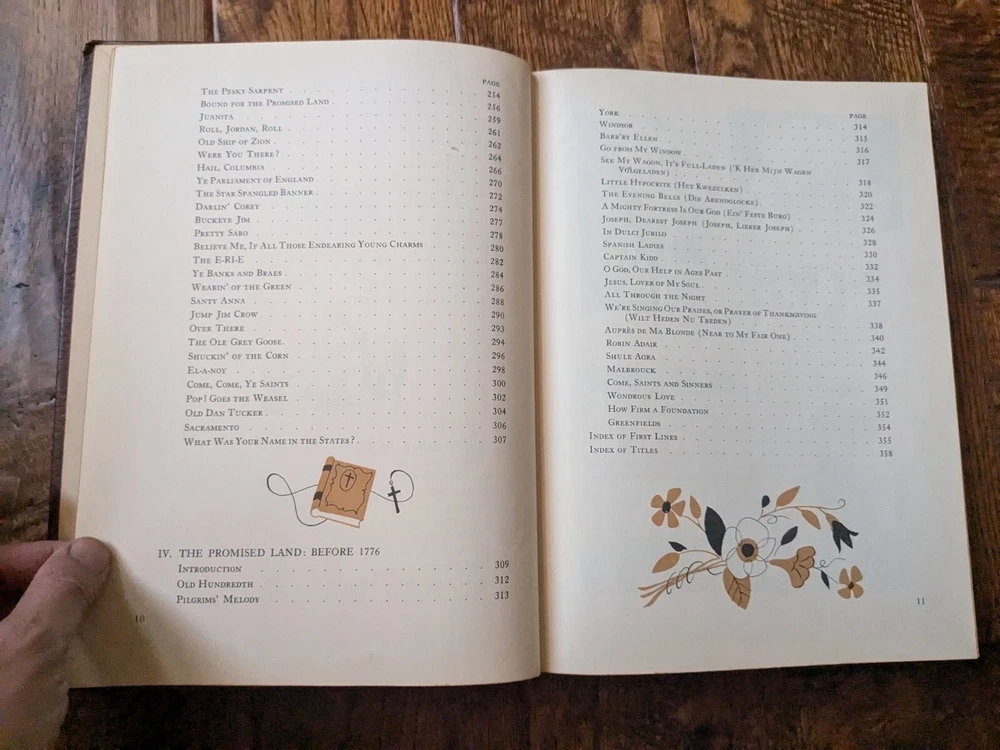 PAGE
The Pesky Sarpent 254
Bound for the Promised Land 256
Juanita 259
Roll, Jordan, Roll 261
Old Ship of Zion 262
Were You There? 264
Hail, Columbia 266
Ye Parliament of England 270
The Star Spangled Banner 272
Darlin' Corey 274
Buckeye Jim 277
Pretty Saro 278
Believe Me, If All Those Endearing Young Charms 280
The E-RI-E 282
Ye Banks and Braes 284
Wearin' of the Green 286
Santy Anna 288
Jump Jim Crow 290
Over There 293
The Ole Grey Goose 294
Shuckin' of the Corn 296
El-a-noy 298
Come, Come, Ye Saints 300
Pop! Goes the Weasel 302
Old Dan Tucker 304
Sacramento 306
What Was Your Name in the States? 307
IV. THE PROMISED LAND: BEFORE 1776
Introduction 309
Old Hundredth 312
Pilgrims' Melody 313
10
PAGE
York 314
Windsor 315
Barb'ry Ellen 316
Go from My Window 317
See My Wagon, It's Full-Laden ('K Heb Mijn Wagen
Volgeladen) 318
Little Hypocrite (Het Kwezelken) 320
The Evening Bells (Die Abendglocke) 322
A Mighty Fortress Is Our God (Ein' Feste Burg) 324
Joseph, Dearest Joseph (Joseph, Lieber Joseph) 326
In Dulci Jubilo 328
Spanish Ladies 330
Captain Kidd 332
O God, Our Help in Ages Past 334
Jesus, Lover of My Soul 335
All Through the Night 337
We're Singing Our Praises, or Prayer of Thanksgiving
(Wilt Heden Nu Treden) 338
Auprès de Ma Blonde (Near to My Fair One) 340
Robin Adair 342
Shule Agra 344
Malbrouck 346
Come, Saints and Sinners 349
Wondrous Love 351
How Firm a Foundation 352
Greenfields 354
Index of First Lines 355
Index of Titles 358
11